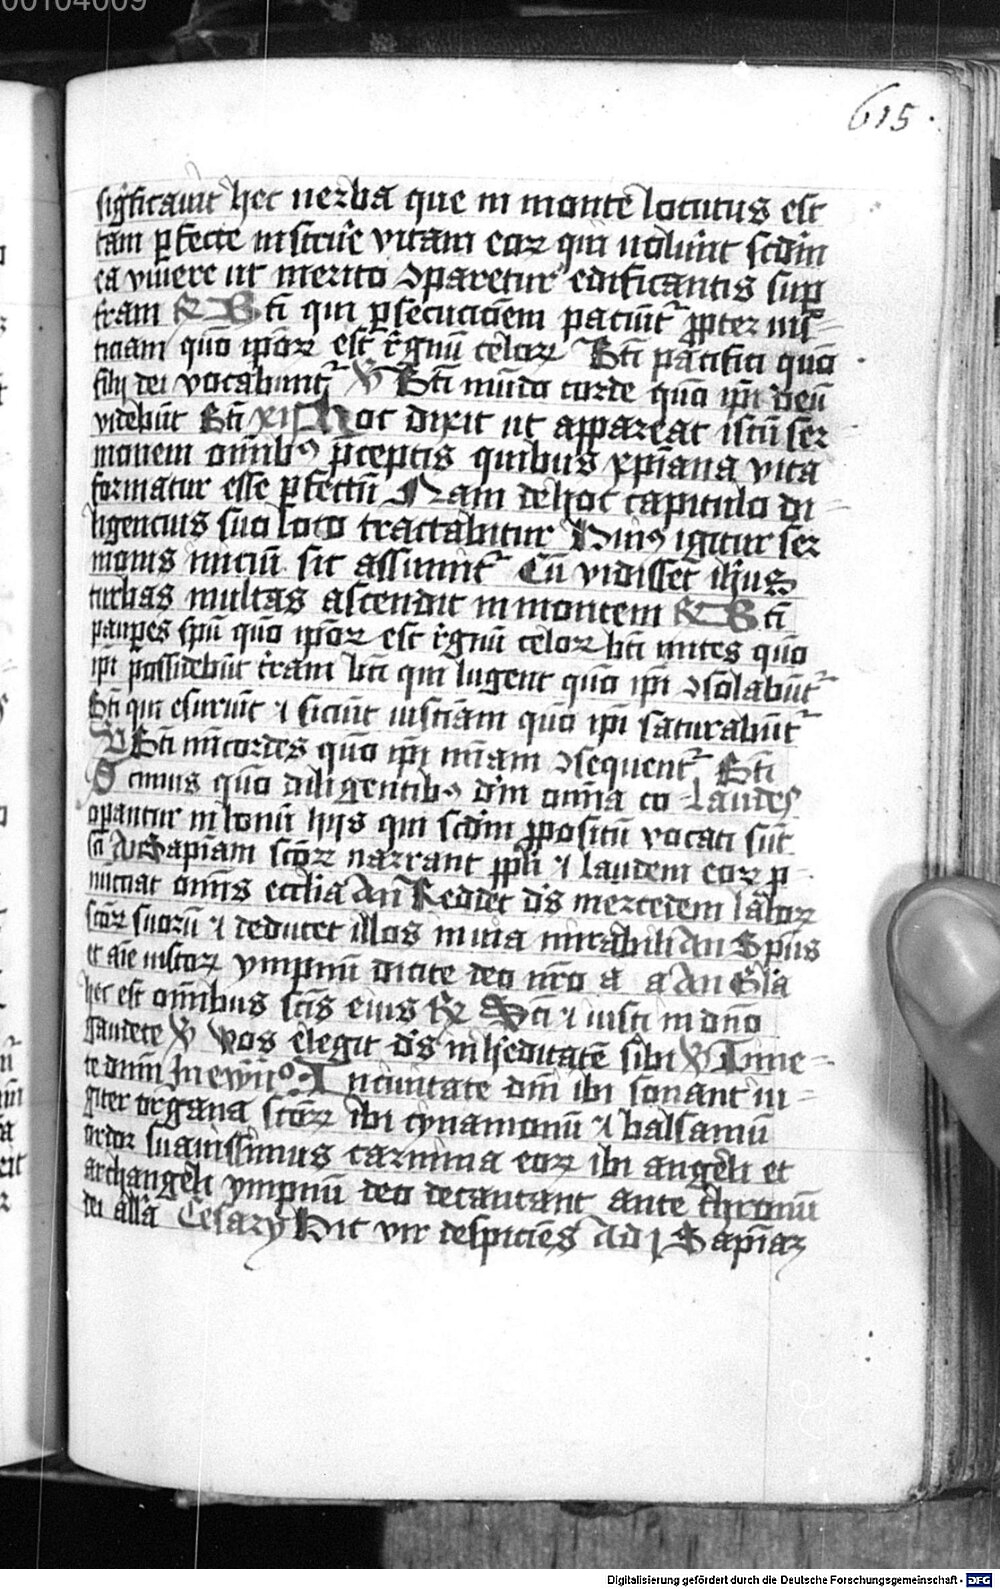 00104009
615.
sig̅ficauit hec uerba que in monte locutus est
tam ꝑfecte instru͛e vitam eoꝝ qui uolu̅int scd̅m
ea viuere ut merito ꝯparetur edificantis sup
t͛ram R B̅ti qui ꝑsecucio̅em paciu̅t᷑ ꝓpter ius
ticiam quo̅ ip̅oꝝ est r͛gnu̅ celoꝝ B̅ti pacifici quo̅
filij dei vocabunt᷑ V B̅ti mu̅do corde quo̅ ip̅i deu̅
videbu̅t B̅ti Hoc dixit ut appareat istu̅ ser
monem om̅ibꝰ p̅ceptis quibus xp̅iana vita
formatur esse ꝑfectu̅ Nam de hoc capitulo di
ligencius suo loco tractabitur Huiꝰ igitur ser
monis iniciu̅ sic assumit᷑ Cu̅ vidisset ih̅us
turbas multas ascendit in montem R B̅ti
paup̅es spu̅ quo̅ ip̅oꝝ est r͛gnu̅ celoꝝ b̅ti mites quo̅
ip̅i possidebu̅t t͛ram b̅ti qui lugent quo̅ ip̅i ꝯsolabu̅t᷑
B̅ti qui esuriu̅t ⁊ siciu̅t iusticia̅m quo̅ ip̅i saturabu̅t᷑
V B̅ti mi̅cordes quo̅ ip̅i mi̅am ꝯsequent᷑ B̅ti
Scimus quo̅ diligentibꝰ d̅m om̅ia co Laudes
oꝑantur in bonu̅ hijs qui scd̅m ꝓpositu̅ vocati su̅t
sc̅i A̅ Sapi̅am sc̅oꝝ narrant pp̅li ⁊ laudem eoꝝ p
nu̅ciat om̅is eccl̅ia An̅ Reddet d̅s mercedem laboꝝ
sc̅oꝝ suoru̅ ⁊ deducet illos in uia mirabili An̅ Sp̅us
et ai̅e iustoꝝ ympnu̅ dicite deo nr̅o a a An̅ Gl̅ia
hec est om̅ibus sc̅is eius R̅ Sc̅i ⁊ iusti in dn̅o
gaudete V Vos elegit d̅s in h͛editate̅ sibi V Time
te dn̅m In ew̅uo̅ In ciuitate dn̅i ibi sonant iu
giter organa sc̅oꝝ ibi cynamomu̅ ⁊ balsamu̅
ordor suauissimus carmina eoꝝ ibi angeli et
archangeli ympnu̅ deo decantant ante thronu̅
dei all̅a Cesarij Hic vir despicie̅s Ad j Sapi̅aꝫ
Digitalisierung gefördert durch die Deutsche Forschungsgemeinschaft - DFG